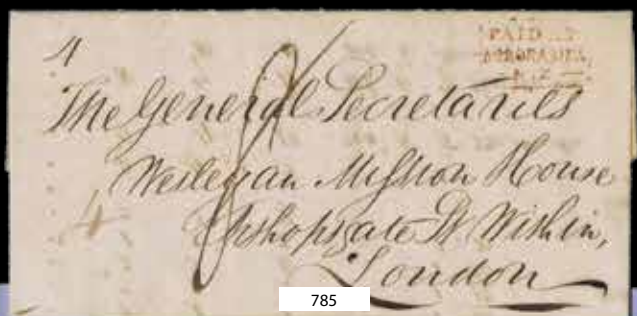 4
PAID AT
AUCKLAND
N.Z.
The General Secretaries
Wesleyan Mission House
4
Bishopsgate St Within,
London
785